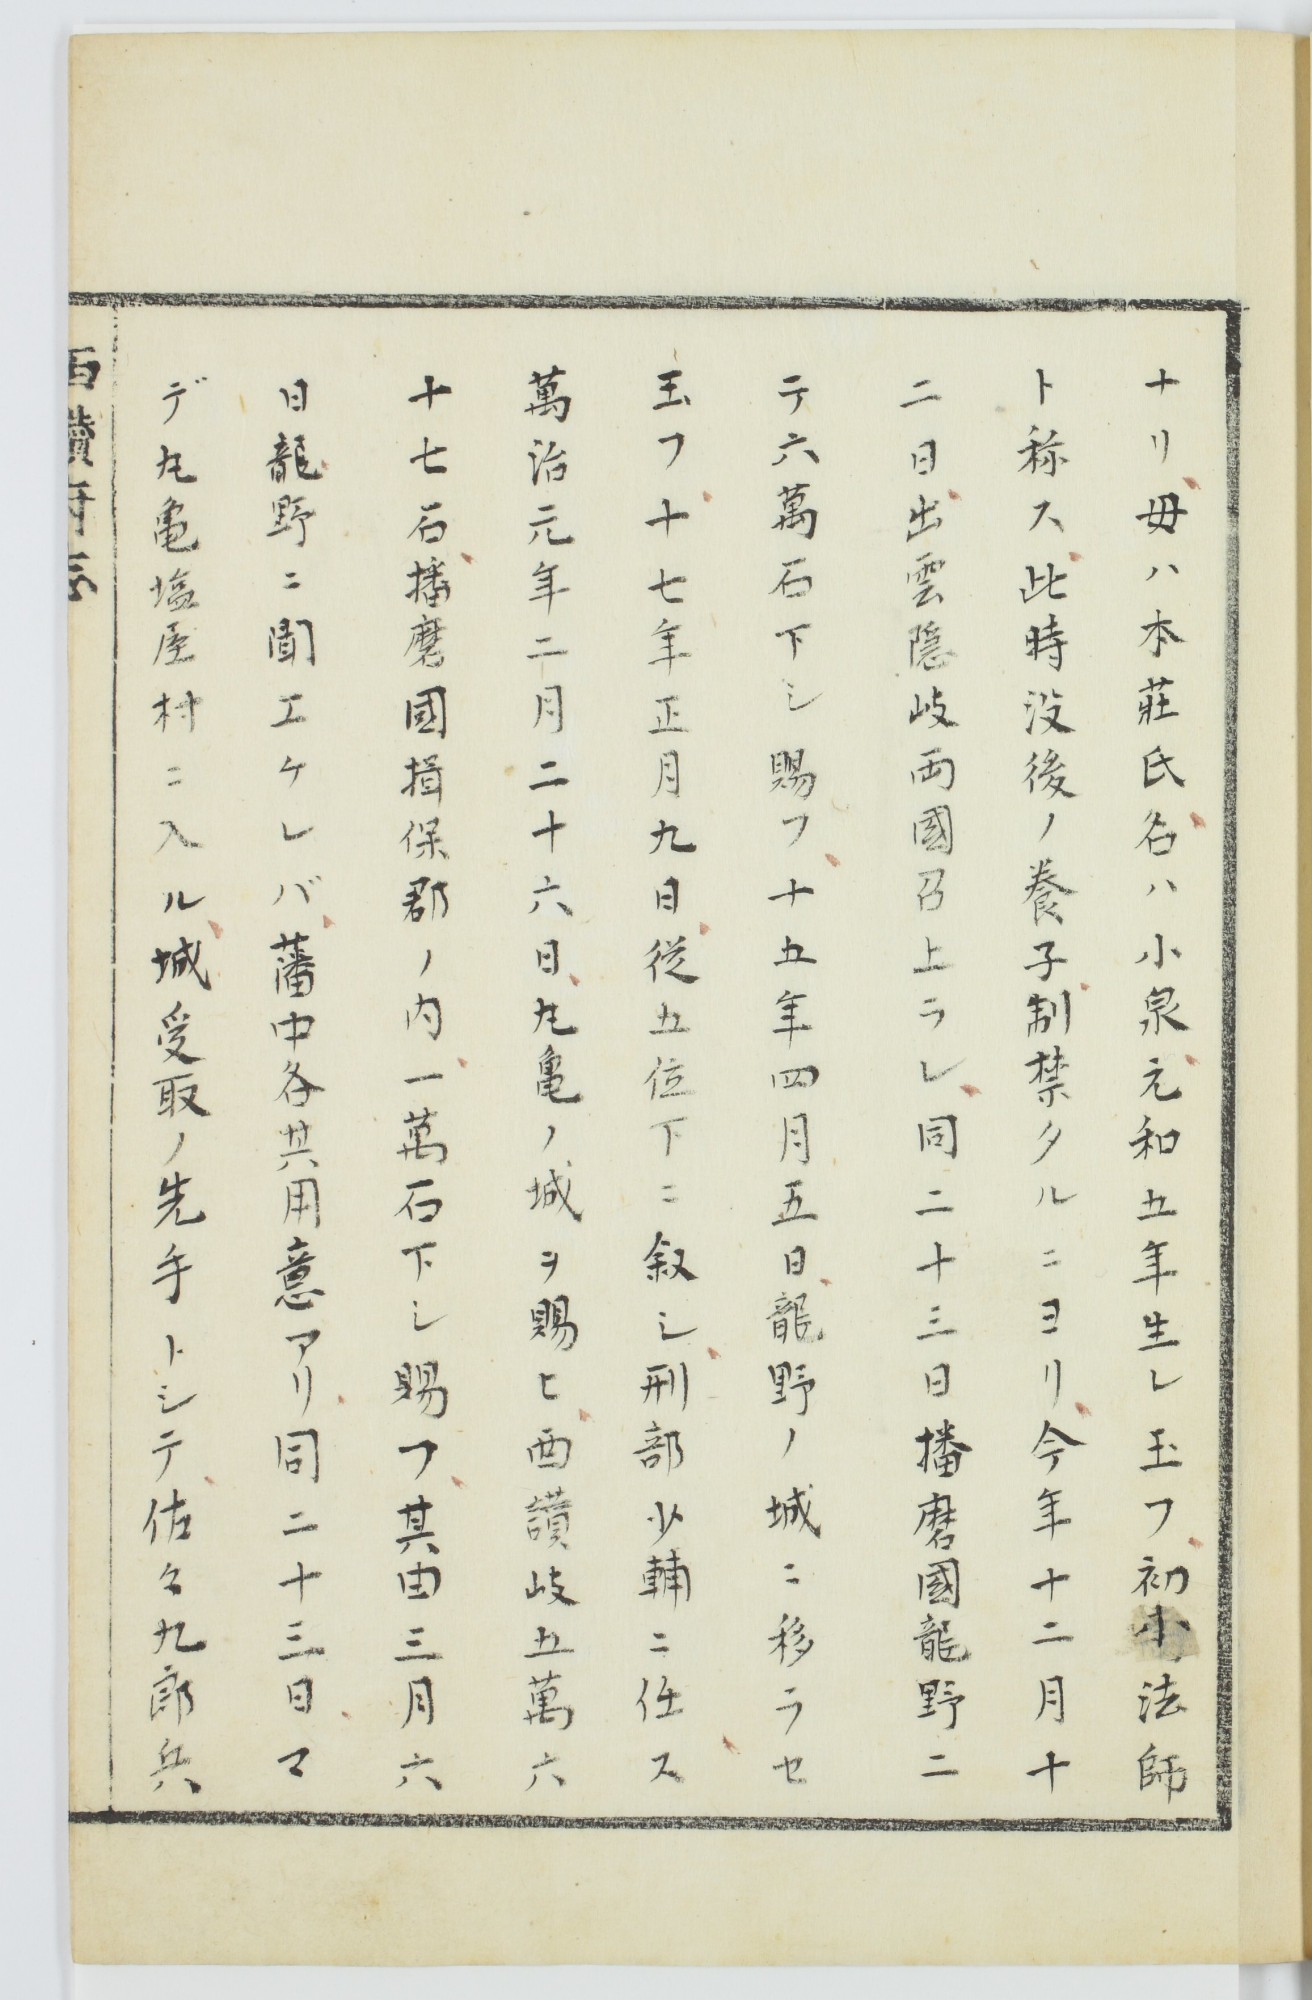 ナリ毋ハ本莊氏名ハ小泉元和五年生レ玉フ初小法師
ト称ス此時没後ノ養子制禁タルニヨリ今年十二月十
二日出雲隠岐両國召上ラレ同二十三日播磨國龍野ニ
テ六萬石下シ賜フ十五年四月五日龍野ノ城ニ移ラセ
玉フ十七年正月九日従五位下ニ叙シ刑部少輔ニ任ス
萬治元年二月二十六日丸亀ノ城ヲ賜ヒ西讃岐五萬六
十七石播磨國揖保郡ノ内一萬石下シ賜フ其由三月六
日龍野ニ聞エケレバ藩中各其用意アリ同二十三日マ
デ丸亀塩屋村ニ入ル城受取ノ先手トシテ佐々九郎兵
西讃府志